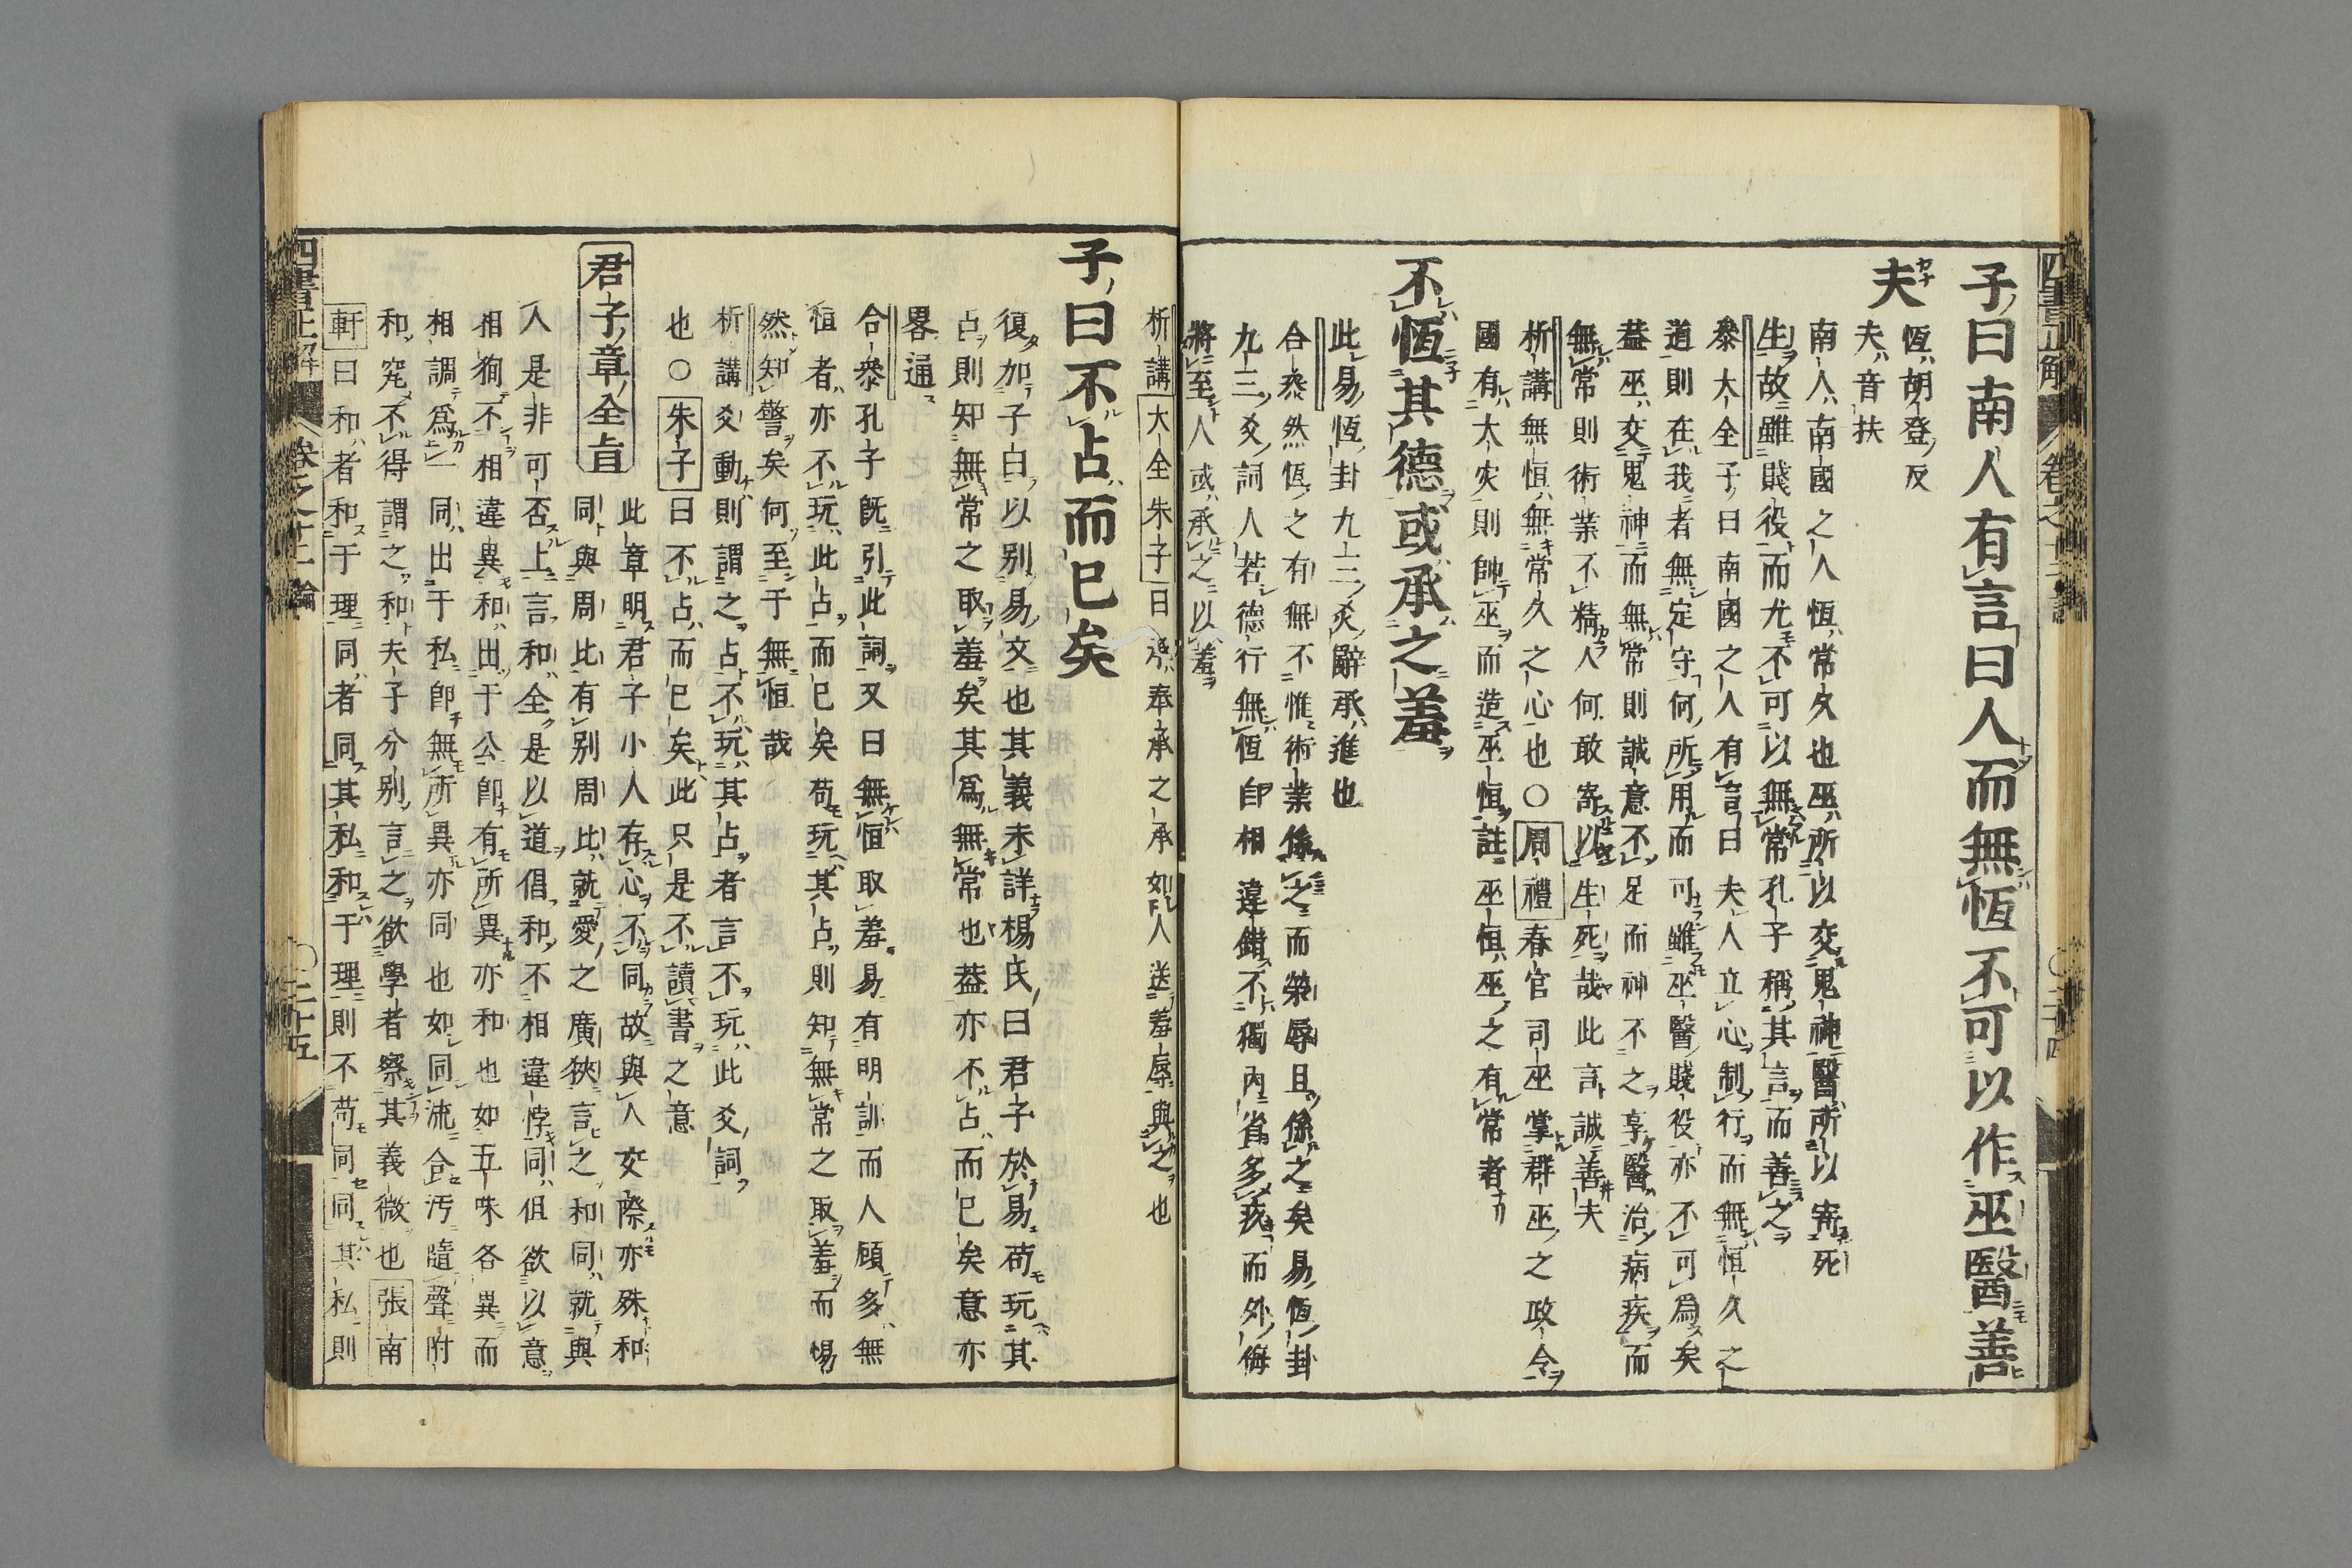 子曰南人有言曰人而無恆不可以作巫醫善
夫
恆胡登反
夫音扶
南人南國之人恆常久也巫所以交鬼神醫所以寄死
生故雖賤役而尤不可以無常孔子稱其言而善之
叅大全子曰南國之人有言曰夫人立心制行而無恒久之
道則在我者無定守何所用而可雖巫醫賤役亦不可為矣
葢巫交鬼神而無常則誠意不足而神不之享醫治病疾而
無常則術業不精人何敢寄以生死哉此言誠善夫
析講無恒無常久之心也○周禮春官司巫掌群巫之政令
國有大灾則帥巫而造巫恒註巫恒巫之有常者
不恆其德或承之羞
此易恆卦九三爻辭承進也
合叅然恆之有無不惟術業係之而榮辱且係之矣易恆卦
九三爻詞人若德行無恆卽相違錯不獨內省多疚而外侮
將至人或承之以羞
析講大全朱子曰承奉承之承如人送羞辱與之也
子曰不占而已矣
復加子曰以别易文也其義未詳楊氏曰君子於易苟玩其
占則知無常之取羞矣其爲無常也葢亦不占而已矣意亦
畧通
合叅孔子旣引此詞又曰無恒取羞易有明訓而人顧多無
恒者亦不玩此占而已矣苟玩其占則知無常之取羞而惕
然知警矣何至于無恒哉
析講爻動則謂之占不玩其占者言不玩此爻詞
也○朱子曰不占而已矣此只是不讀書之意
君子章全旨
此章明君子小人存心不同故與人交際亦殊和
同與周比有别周比就愛之廣狹言之和同就與
人是非可否上言和全是以道倡和不相違悖同但欲以意
相狥不相違異和出于公卽有所異亦和也如五味各異而
相調爲一同出于私卽無所異亦同也如同流合汚隨聲附
和究不得謂之和夫子分别言之欲學者察其義微也張南
軒曰和者和于理同者同其私和于理則不苟同同其私則
四書正解
卷之十二論
二十五